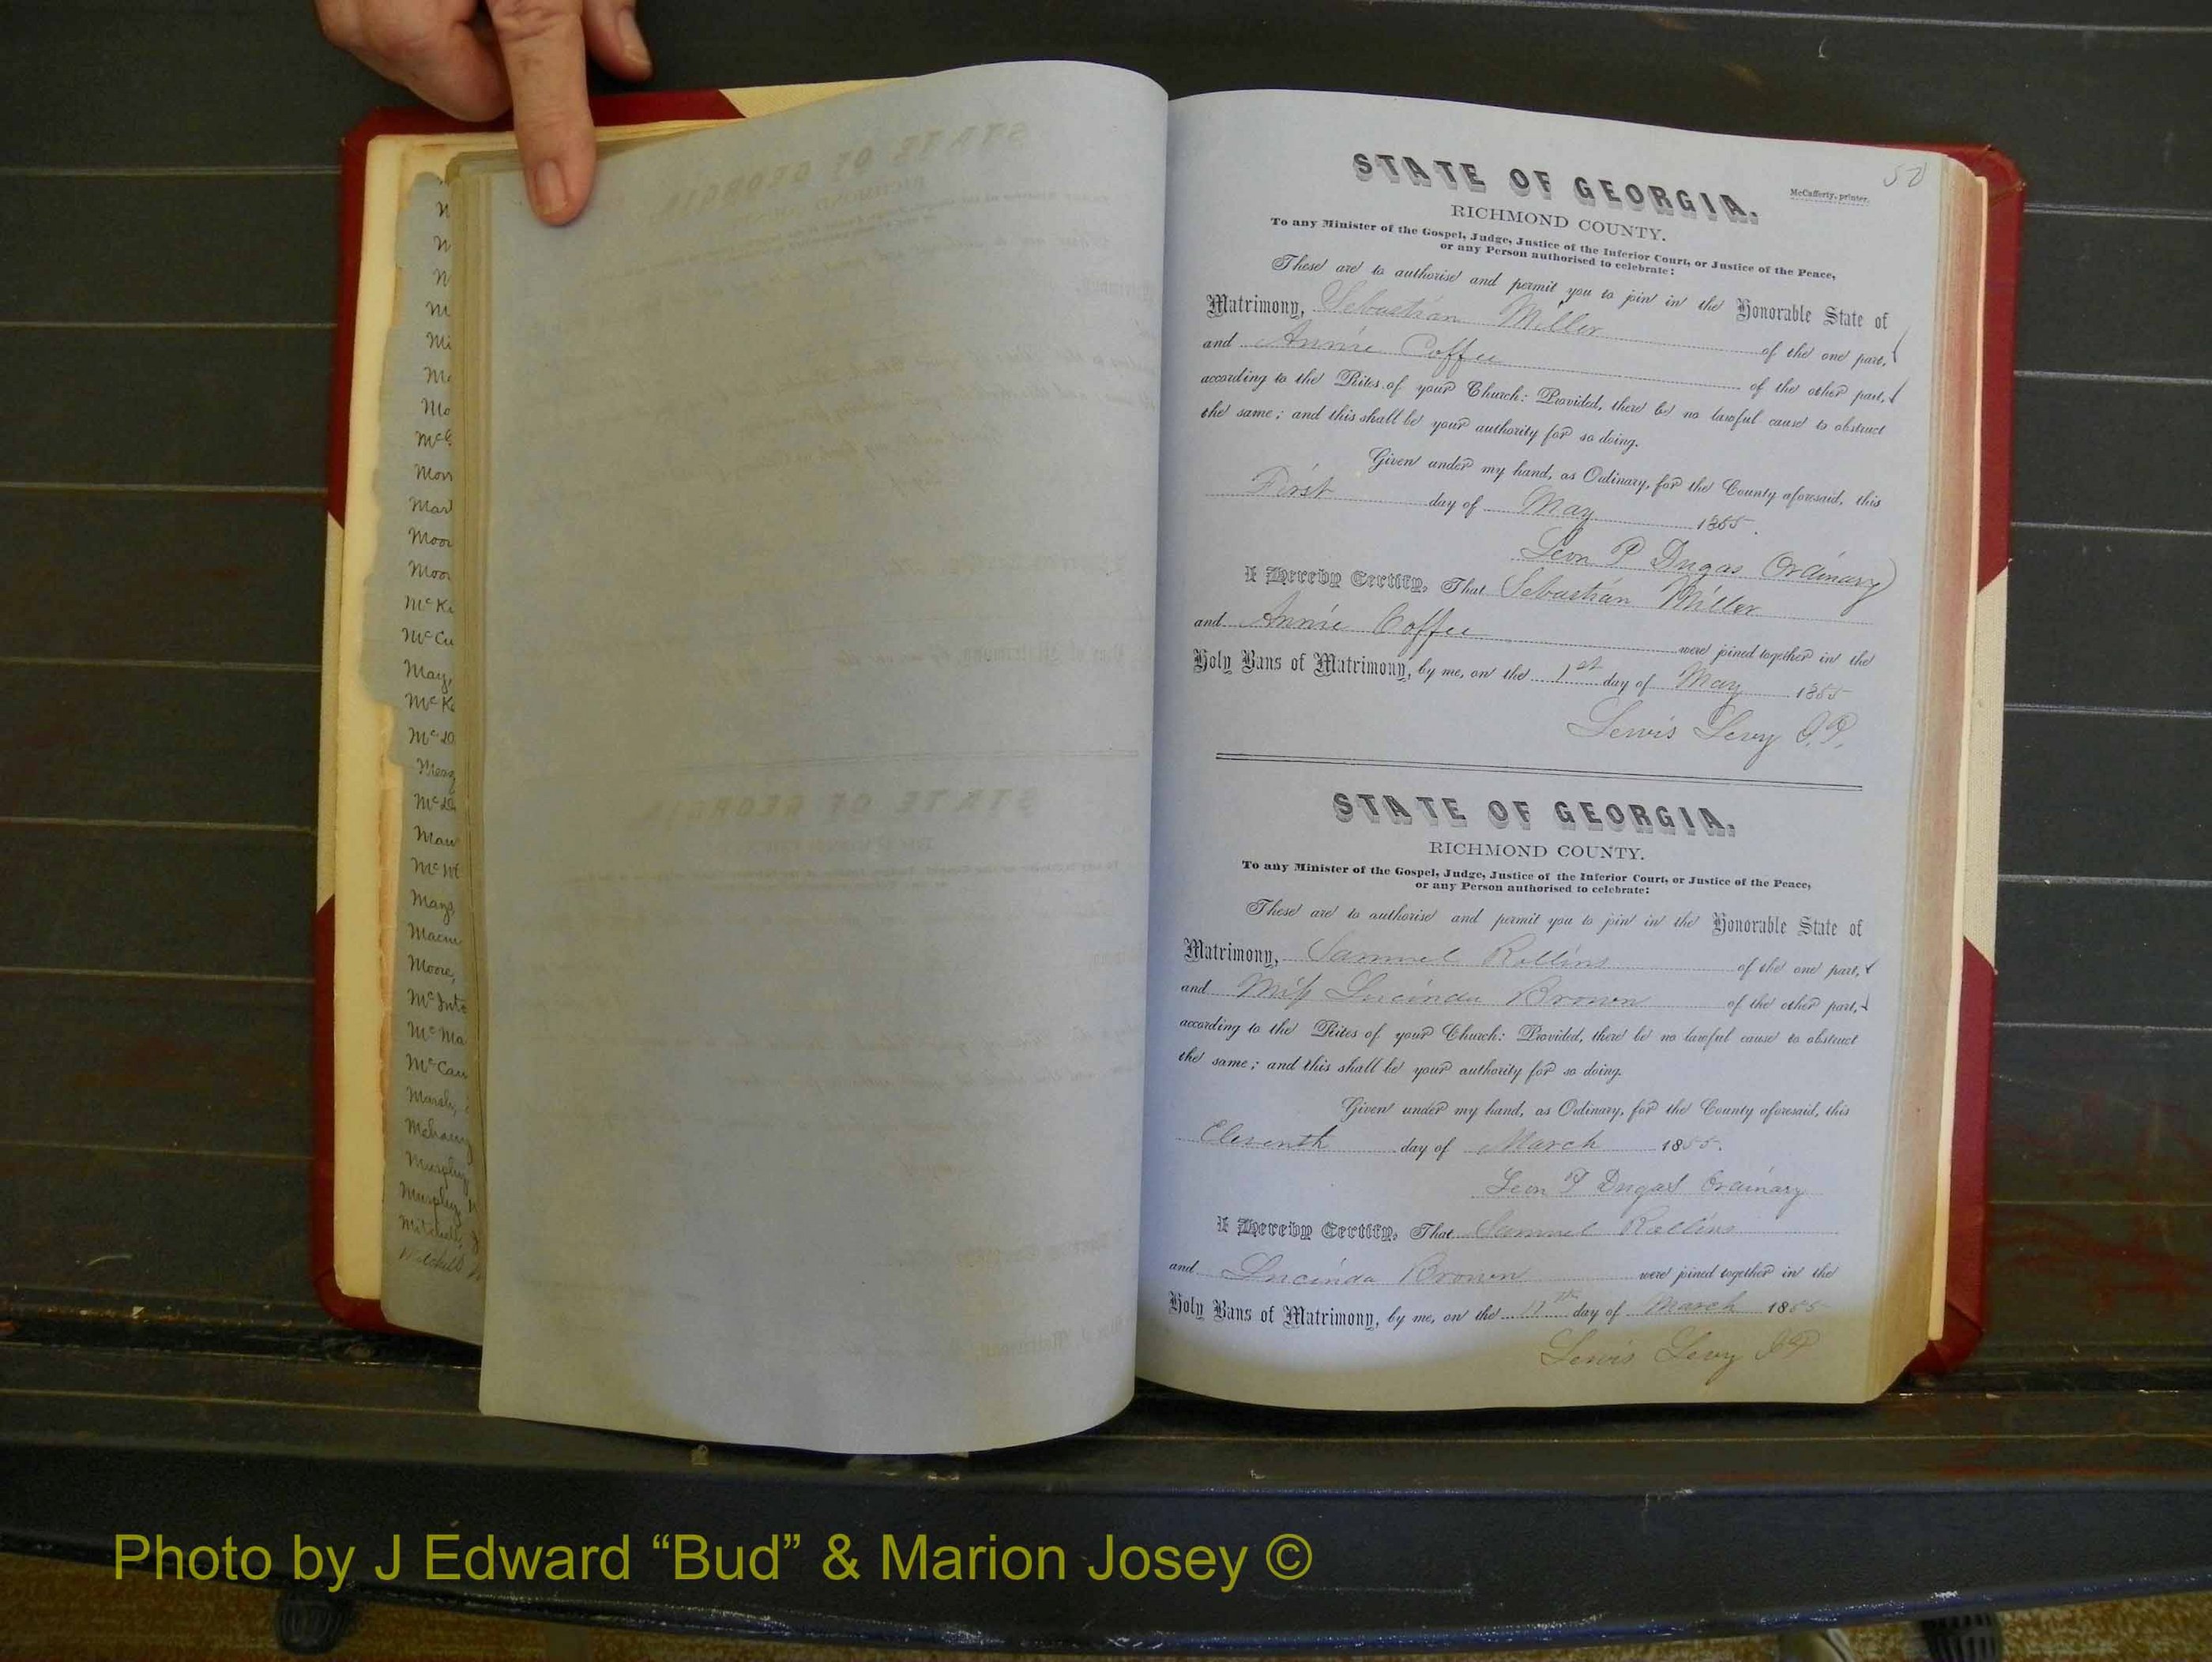 N
N
N
M
Mi
Mo
McG
Morr
Mart
Moor
Moor
McKi
McCu
May,
McK
McD
McDo
Maur
McWi
Mays
Macu
Moore,
McInto
McMa
McCan
Marsh,
Mehany
Murphy
Murphy,
Mitchell,
Mitchell
50
STATE OF GEORGIA.
McCafferty, printer.
RICHMOND COUNTY.
To any Minister of the Gospel, Judge, Justice of the Inferior Court, or Justice of the Peace,
or any Person authorised to celebrate:
These are to authorise and permit you to join in the Honorable State of
Matrimony, Sebastian Miller of the one part,
and Annie Coffee of the other part,
according to the Rites of your Church: Provided, there be no lawful cause to obstruct
the same; and this shall be your authority for so doing.
Given under my hand, as Ordinary, for the County aforesaid, this
First day of May 1855.
Leon P Dugas Ordinary
I Hereby Certify, That Sebastian Miller
and Annie Coffee were joined together in the
Holy Bans of Matrimony, by me, on the 1st day of May 1855
Lewis Levy J.P.
STATE OF GEORGIA.
RICHMOND COUNTY.
To any Minister of the Gospel, Judge, Justice of the Inferior Court, or Justice of the Peace,
or any Person authorised to celebrate:
These are to authorise and permit you to join in the Honorable State of
Matrimony, Samuel Rollins of the one part,
and Miss Lucinda Brown of the other part,
according to the Rites of your Church: Provided, there be no lawful cause to obstruct
the same; and this shall be your authority for so doing.
Given under my hand, as Ordinary, for the County aforesaid, this
Eleventh day of March 1855.
Leon P Dugas Ordinary
I Hereby Certify, That Samuel Rollins
and Lucinda Brown were joined together in the
Holy Bans of Matrimony, by me, on the 11th day of March 1855
Lewis Levy JP
Photo by J Edward “Bud” & Marion Josey ©